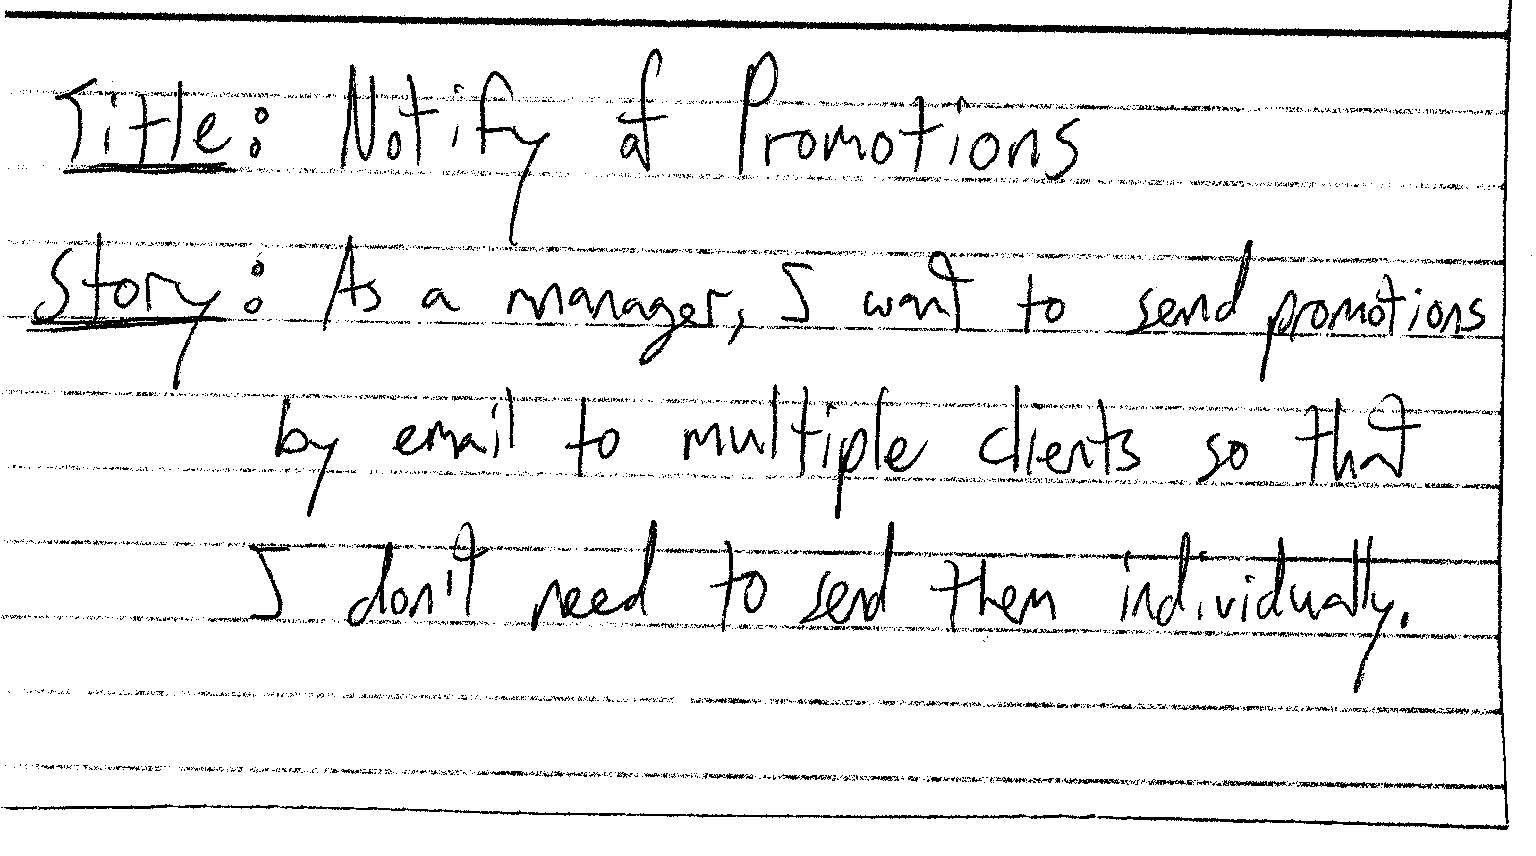 Title: Notify of Promotions
Story: As a manager, I want to send promotions
by email to multiple clients so that
I don't need to send them individually.